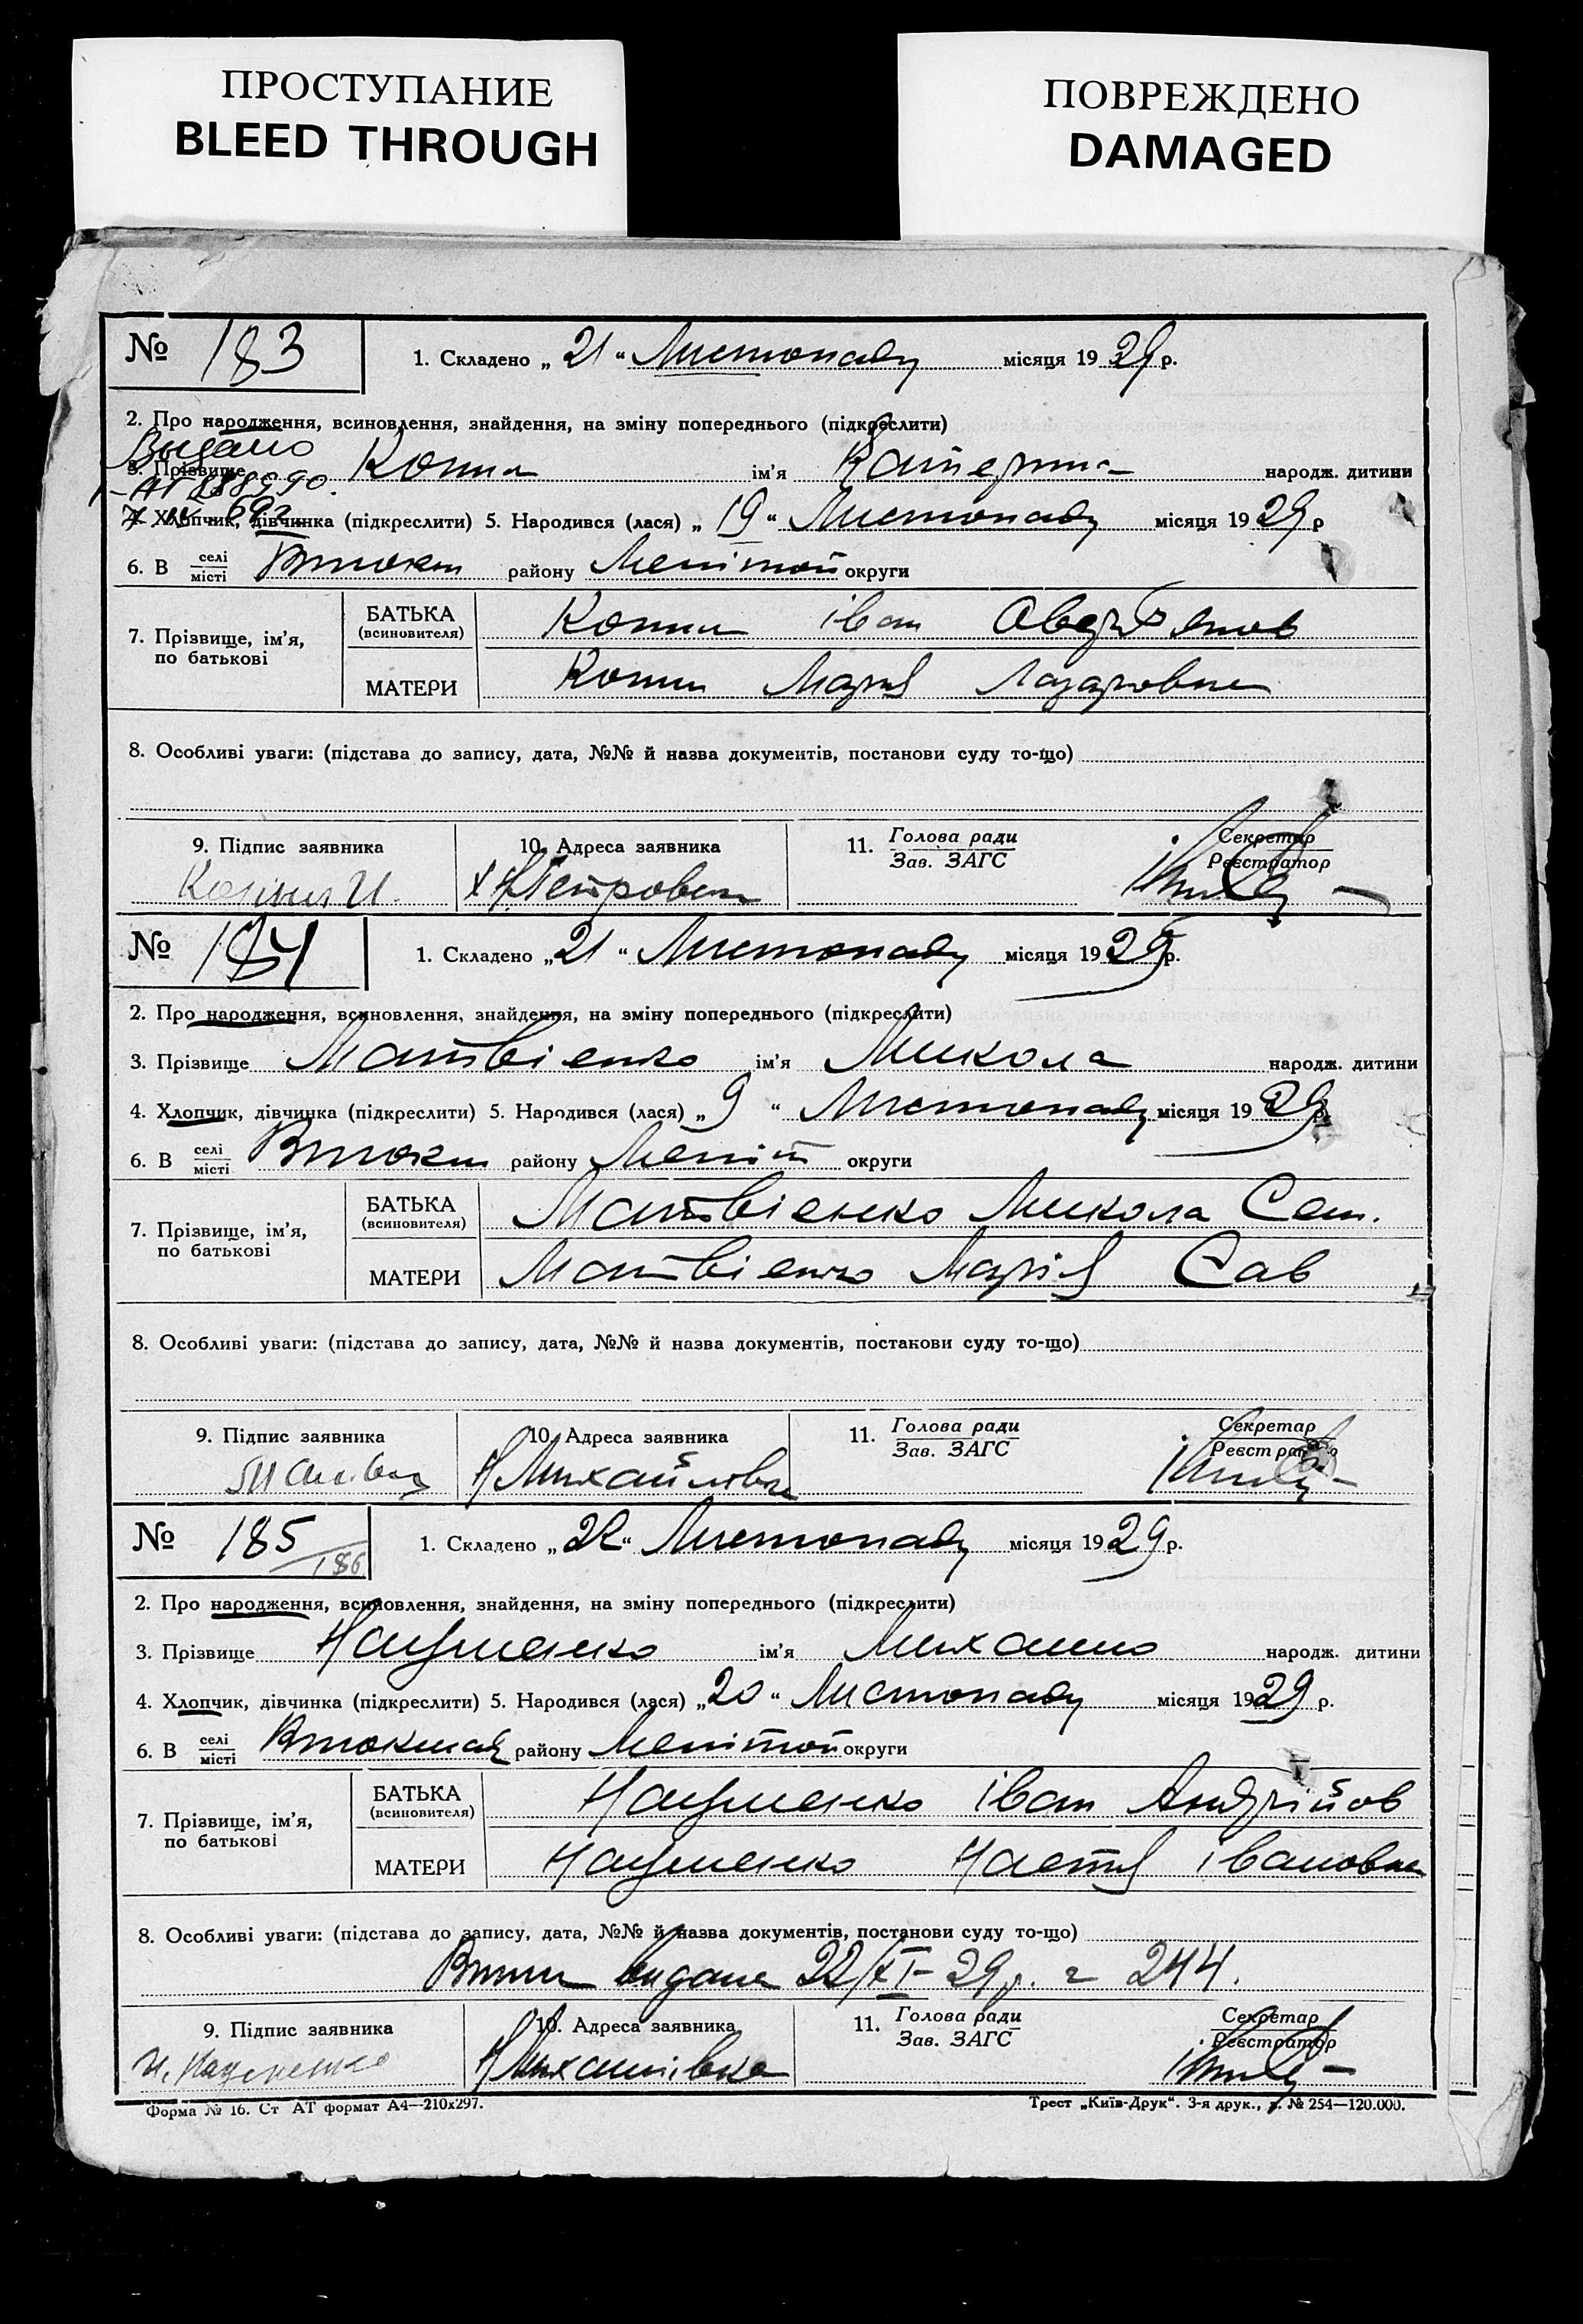 ПРОСТУПАНИЕ
BLEED THROUGH
ПОВРЕЖДЕНО
DAMAGED
№ 183 1. Складено „ 21 “ Листопаду місяця 19 29 р.
2. Про народження, всиновлення, знайдення, на зміну попереднього (підкреслити)
Выдано
3. Прізвище ім'я Катерина народж. дитини
4. Хлопчик, дівчинка (підкреслити) 5. Народився (лася) „ 19 “ Листопаду місяця 19 29 р
6. В селі місті району округи
7. Прізвище, ім'я, по батькові
БАТЬКА (всиновителя) іван
МАТЕРИ Марія Лазаровна
8. Особливі уваги: (підстава до запису, дата, №№ й назва документів, постанови суду то-що)
9. Підпис заявника 10. Адреса заявника 11. Голова ради Зав. ЗАГС Секретар Реєстратор
№ 184 1. Складено „ 21 “ Листопаду місяця 19 29 р.
2. Про народження, всиновлення, знайдення, на зміну попереднього (підкреслити)
3. Прізвище Матвієнко ім'я Микола народж. дитини
4. Хлопчик, дівчинка (підкреслити) 5. Народився (лася) „ 9 “ Листопаду місяця 19 29 р.
6. В селі місті району Меліт округи
7. Прізвище, ім'я, по батькові
БАТЬКА (всиновителя) Матвієнко Микола Сем.
МАТЕРИ Матвієнко Марія Сав
8. Особливі уваги: (підстава до запису, дата, №№ й назва документів, постанови суду то-що)
9. Підпис заявника 10. Адреса заявника 11. Голова ради Зав. ЗАГС Секретар Реєстратор
Н Михайлівка
№ 185 186 1. Складено „ 22 “ Листопаду місяця 19 29 р.
2. Про народження, всиновлення, знайдення, на зміну попереднього (підкреслити)
3. Прізвище Науменко ім'я Михайло народж. дитини
4. Хлопчик, дівчинка (підкреслити) 5. Народився (лася) „ 20 “ Листопаду місяця 19 29 р.
6. В селі місті району округи
7. Прізвище, ім'я, по батькові
БАТЬКА (всиновителя) Науменко іван Андрійов
МАТЕРИ Науменко Настя івановна
8. Особливі уваги: (підстава до запису, дата, №№ й назва документів, постанови суду то-що)
видана 22/XI-29р. 244.
9. Підпис заявника 10. Адреса заявника 11. Голова ради Зав. ЗАГС Секретар Реєстратор
И. Науменко Н Михайлівка
Форма № 16. Ст АТ формат А4—210x297. Трест „Київ-Друк“. 3-я друк., з. № 254—120.000.